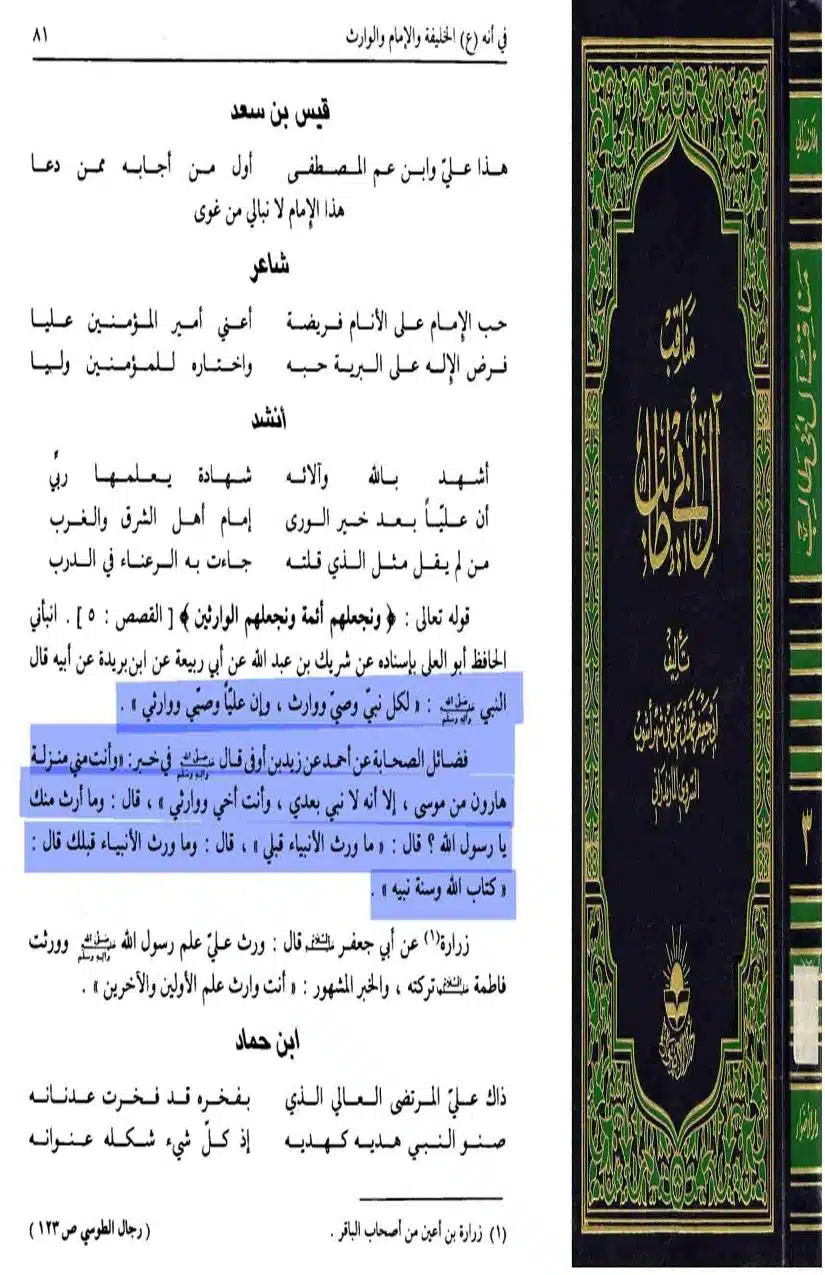 في أنه (ع) الخليفة والإمام والوارث ٨١
قيس بن سعد
هذا عليّ وابن عم المصطفى أول من أجابه ممن دعا
هذا الإمام لا نبالي من غوى
شاعر
حب الإمام على الأنام فريضة أعني أمير المؤمنين عليا
فرض الإله على البرية حبه واختاره للمؤمنين وليا
أنشد
أشهد بالله وآلائه شهادة يعلمها ربّي
أن عليّاً بعد خير الورى إمام أهل الشرق والغرب
من لم يقل مثل الذي قلته جاءت به الرعناء في الدرب
قوله تعالى : ﴿ ونجعلهم أئمة ونجعلهم الوارثين ﴾ [ القصص : ٥ ] . انبأني
الحافظ أبو العلى بإسناده عن شريك بن عبد الله عن أبي ربيعة عن ابن بريدة عن أبيه قال
النبي صلى الله عليه وآله وسلم : « لكل نبيّ وصيّ ووارث ، وإن عليّاً وصيّي ووارثي » .
فضائل الصحابة عن أحمد عن زيد بن أوفى قال صلى الله عليه وآله وسلم في خبر : « وأنت مني منزلة
هارون من موسى ، إلا أنه لا نبي بعدي ، وأنت أخي ووارثي » ، قال : وما أرث منك
يا رسول الله ؟ قال : « ما ورث الأنبياء قبلي » ، قال : وما ورث الأنبياء قبلك قال :
« كتاب الله وسنة نبيه » .
زرارة(١) عن أبي جعفر عليه السلام قال : ورث عليّ علم رسول الله صلى الله عليه وآله وسلم وورثت
فاطمة عليها السلام تركته ، والخبر المشهور : « أنت وارث علم الأولين والآخرين » .
ابن حماد
ذاك عليّ المرتضى العالي الذي بفخره قد فخرت عدنانه
صنو النبي هديه كهديه إذ كلّ شيء شكله عنوانه
(١) زرارة بن أعين من أصحاب الباقر . ( رجال الطوسي ص ١٢٣ )
مناقب
آل أبي طالب
تأليف
أبي جعفر محمد بن علي بن شهر آشوب
السروي المازندراني
مناقب آل أبي طالب
٣